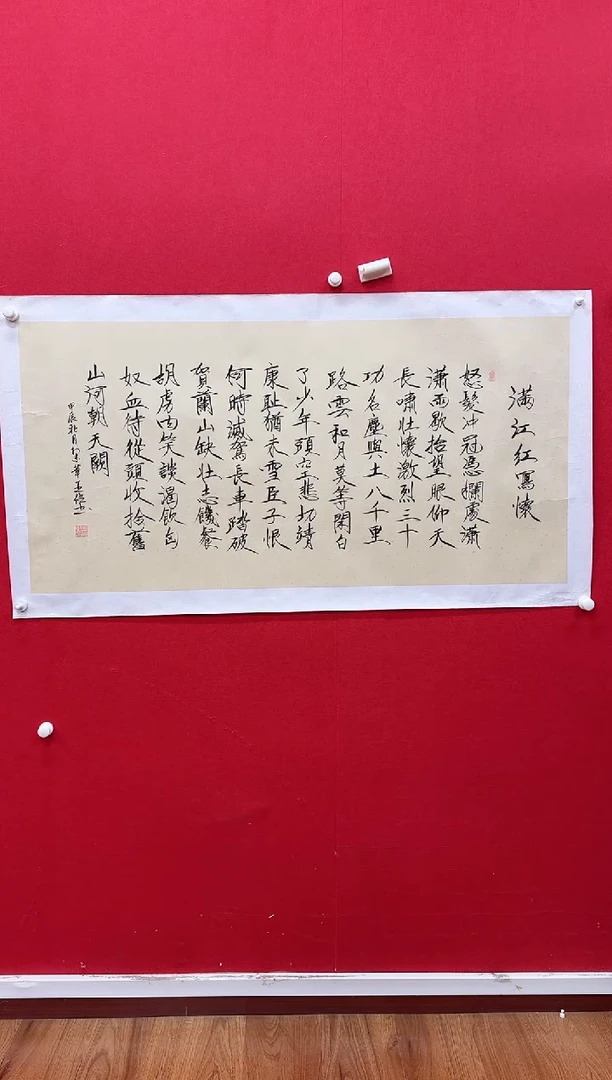 满江红寫懷
怒髮冲冠憑欄處瀟
瀟雨歇抬望眼仰天
長嘯壯懷激烈三十
功名塵與土八千里
路雲和月莫等閑白
了少年頭空悲切靖
康耻猶未雪臣子恨
何時滅駕長車踏破
賀蘭山缺壮志饑餐
胡虏肉笑談渴飲匈
奴血待從頭收拾舊
山河朝天闕
甲辰